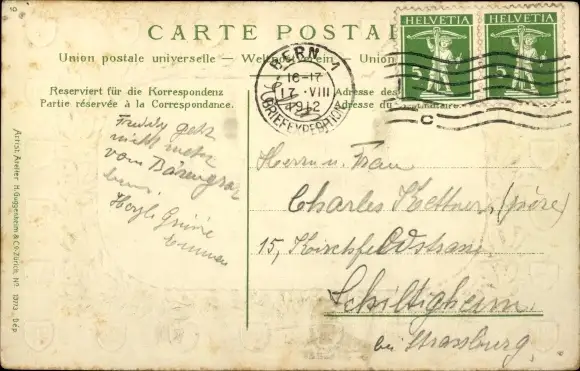 9
CARTE POSTALE
Union postale universelle — Weltpostverein — Union
HELVETIA HELVETIA
5 5
BERN 1
16-17
17. VIII
1912
BRIEFEXPEDITION
C
Reserviert für die Korrespondenz
Partie réservée à la Correspondance.
Adresse des
Adresse du
Freddy geht
nicht mehr
vom Bärengrab
Herzl. Grüsse
Herrn u. Frau
Charles Kettner, (père)
15, Kirchfeldstrasse
Schiltigheim
bei Strassburg
Artist. Atelier H. Guggenheim & Co. Zürich, No. 13713 Dép.